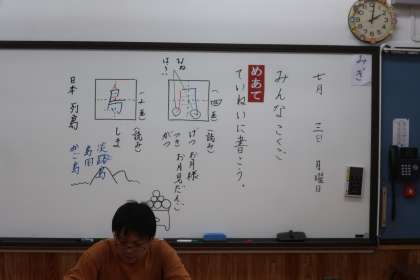 みぎ
七月 三日 月曜日
みんなこくご
めあて
ていねいに書こう。
(四画)
月
はね
は?
(読み)
げつ お月様
つき お月見だんご
がつ
(十画)
島
(読み)
しま
淡路島
島田
日本列島